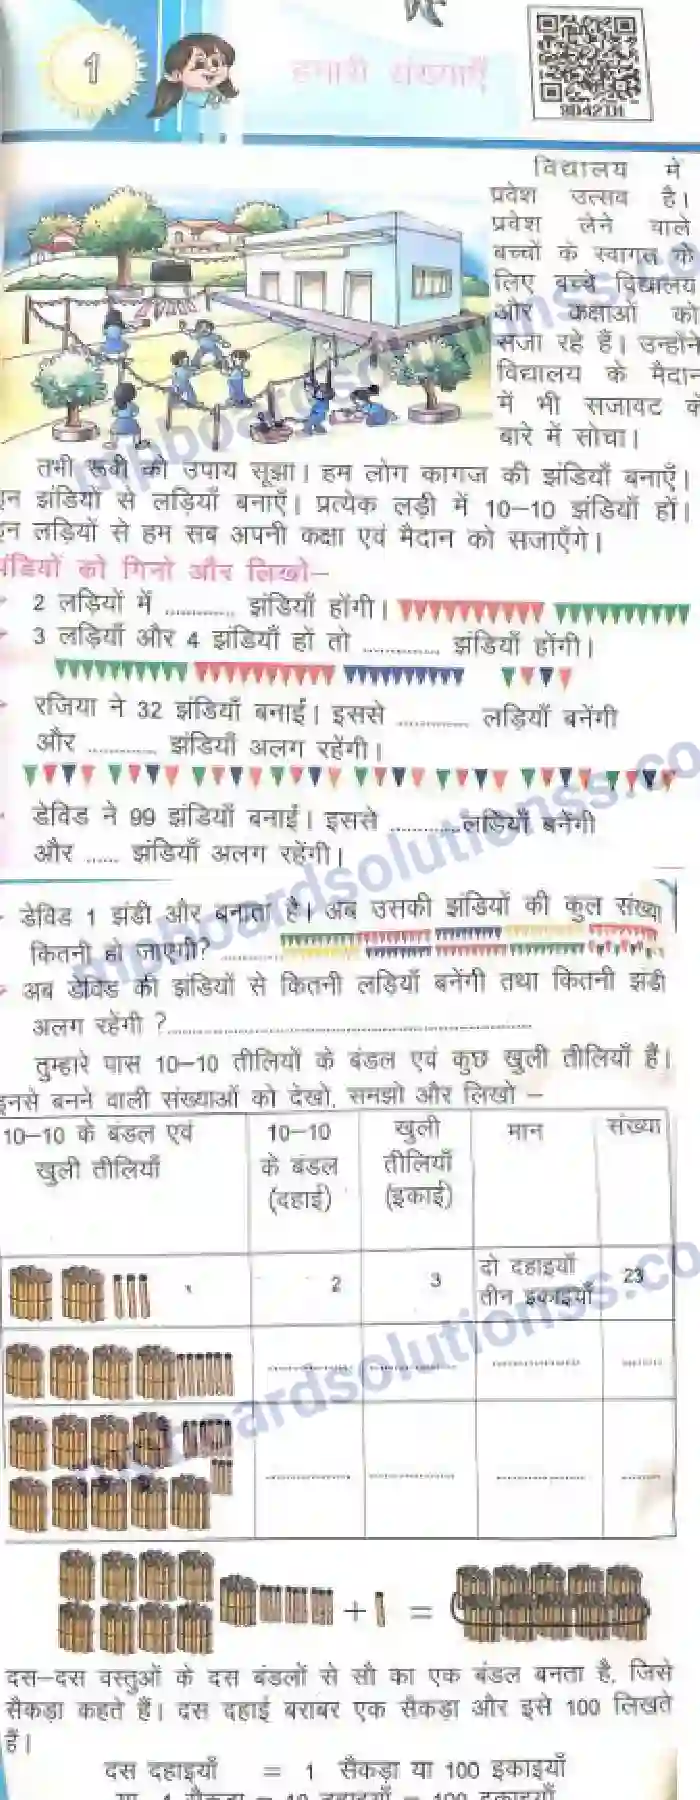 1
हमारी संख्याएँ
9D42IH
विद्यालय में
प्रवेश उत्सव है।
प्रवेश लेने वाले
बच्चों के स्वागत के
लिए बच्चे विद्यालय
और कक्षाओं को
सजा रहे हैं। उन्होंने
विद्यालय के मैदान
में भी सजावट के
बारे में सोचा।
तभी रूबी को उपाय सूझा। हम लोग कागज की झंडियाँ बनाएँ।
इन झंडियों से लड़ियाँ बनाएँ। प्रत्येक लड़ी में 10–10 झंडियाँ हों।
इन लड़ियों से हम सब अपनी कक्षा एवं मैदान को सजाएँगे।
झंडियों को गिनो और लिखो–
2 लड़ियों में ............ झंडियाँ होंगी।
3 लड़ियाँ और 4 झंडियाँ हों तो ............ झंडियाँ होंगी।
रजिया ने 32 झंडियाँ बनाईं। इससे ............ लड़ियाँ बनेंगी
और ............ झंडियाँ अलग रहेंगी।
डेविड ने 99 झंडियाँ बनाईं। इससे ............लड़ियाँ बनेंगी
और ...... झंडियाँ अलग रहेंगी।
डेविड 1 झंडी और बनाता है। अब उसकी झंडियों की कुल संख्या
कितनी हो जाएगी? ............
अब डेविड की झंडियों से कितनी लड़ियाँ बनेंगी तथा कितनी झंडी
अलग रहेंगी ?............................................................
तुम्हारे पास 10–10 तीलियों के बंडल एवं कुछ खुली तीलियाँ हैं।
इनसे बनने वाली संख्याओं को देखो, समझो और लिखो –
10–10 के बंडल एवं खुली तीलियाँ
10–10 के बंडल (दहाई)
खुली तीलियाँ (इकाई)
मान
संख्या
2 3 दो दहाइयाँ तीन इकाइयाँ 23
+ =
दस–दस वस्तुओं के दस बंडलों से सौ का एक बंडल बनता है, जिसे
सैकड़ा कहते हैं। दस दहाई बराबर एक सैकड़ा और इसे 100 लिखते
हैं।
दस दहाइयाँ = 1 सैकड़ा या 100 इकाइयाँ
या 1 सैकड़ा = 10 दहाइयाँ = 100 इकाइयाँ
mpboardsolutionss.co